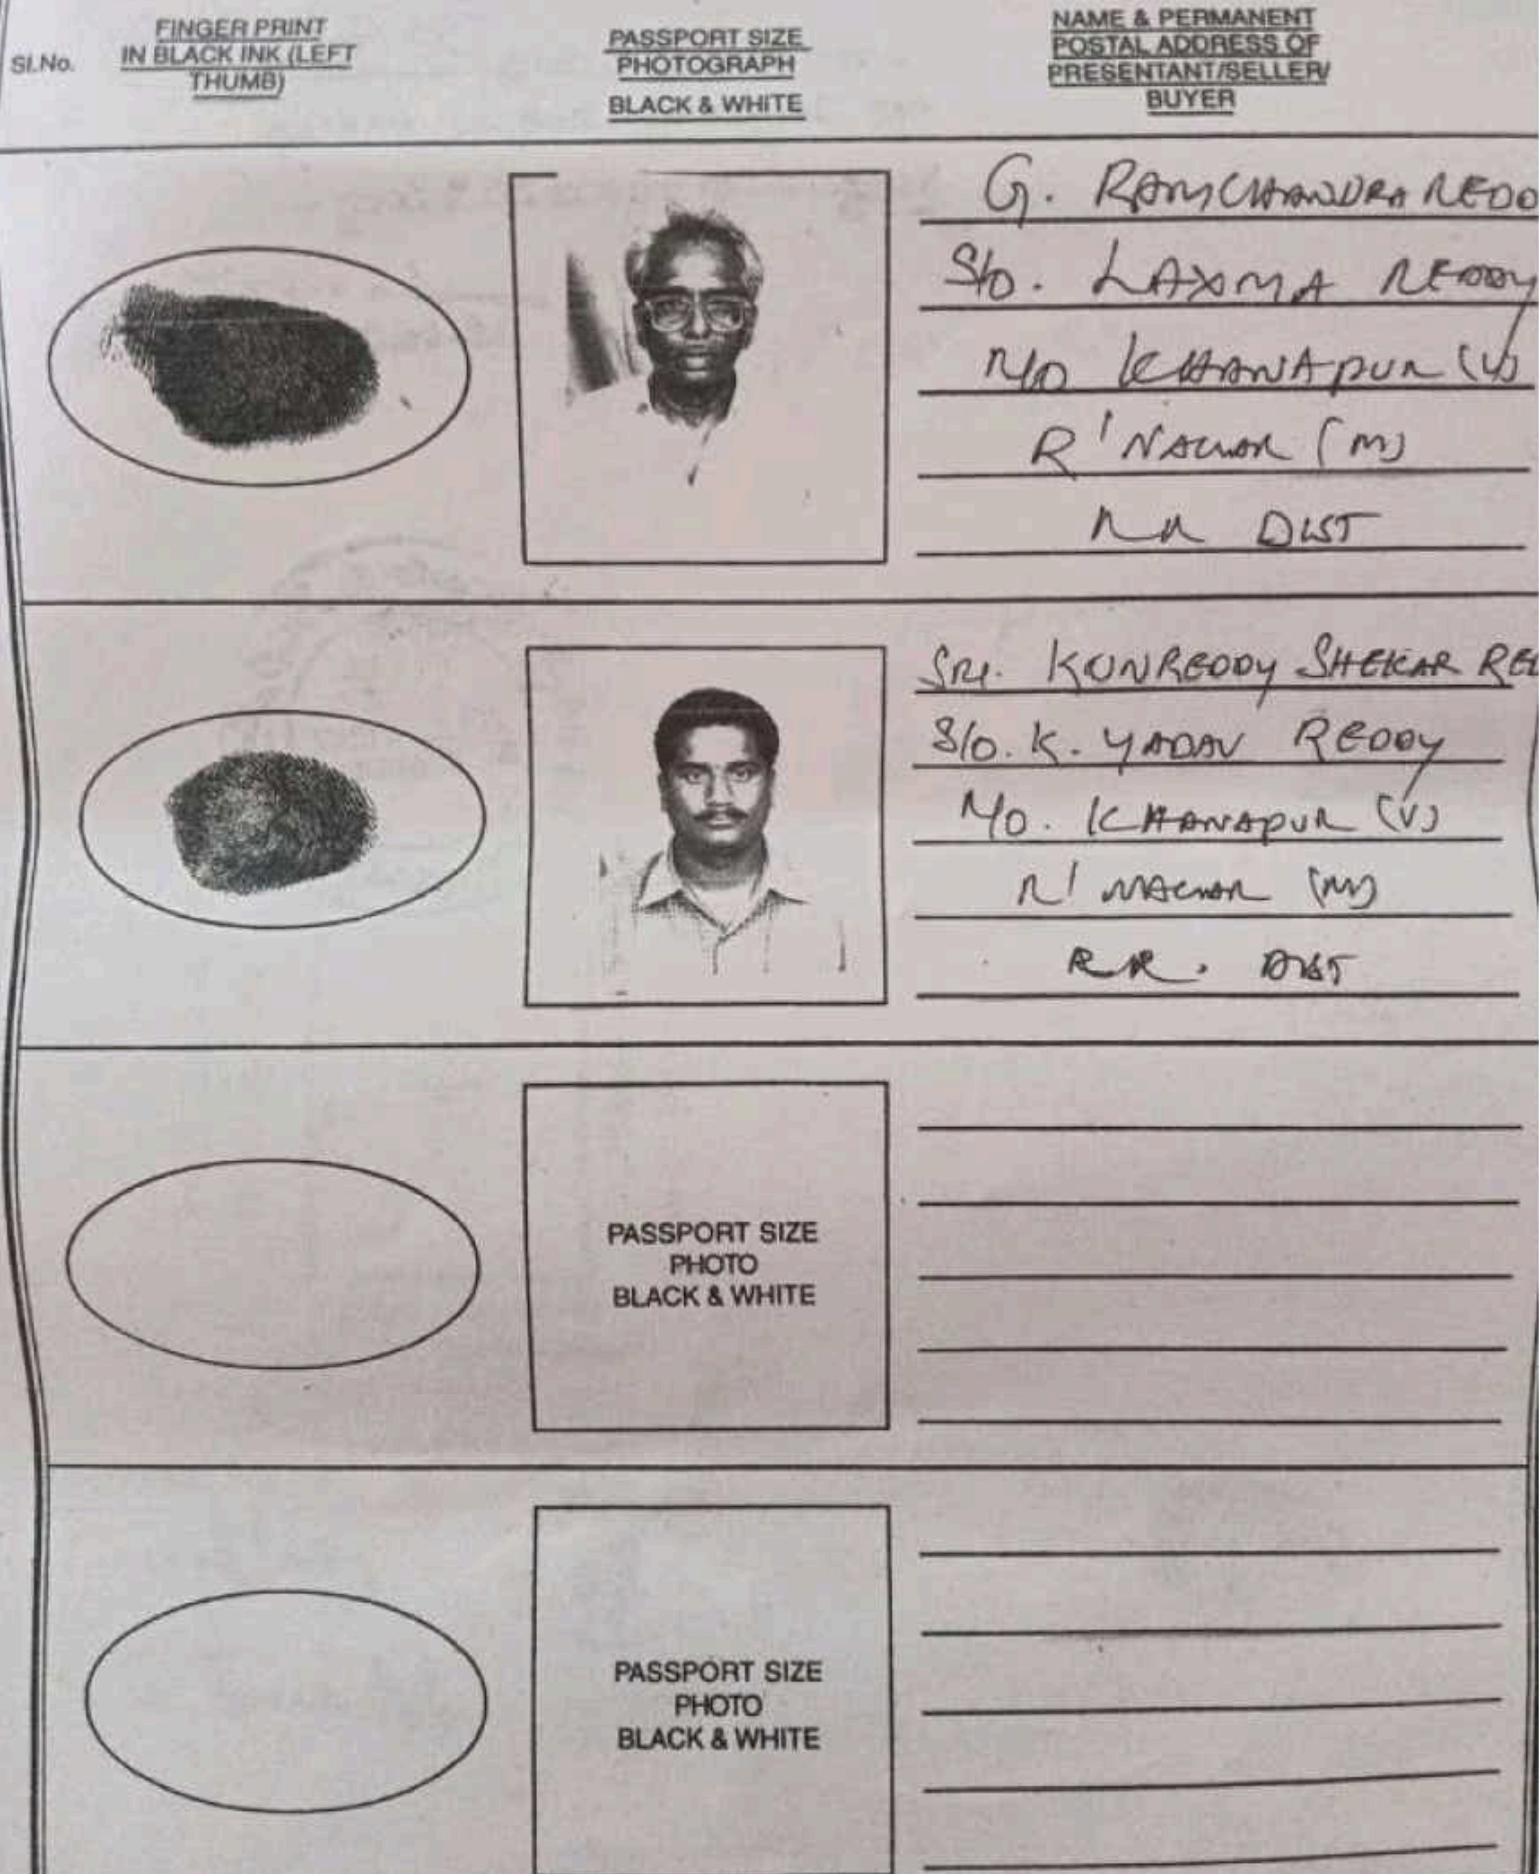 Sl.No.
FINGER PRINT
IN BLACK INK (LEFT
THUMB)
PASSPORT SIZE
PHOTOGRAPH
BLACK & WHITE
NAME & PERMANENT
POSTAL ADDRESS OF
PRESENTANT/SELLER/
BUYER
G. RAMCHANDRA REDD
S/o. LAXMA REDDY
R/o KHANAPUR (V)
R' NAGAR (M)
RR DIST
SRI. KUNREDDY SHEKAR RED
S/o. K. YADAV REDDY
R/o. KHANAPUR (V)
R' NAGAR (M)
RR. DIST
PASSPORT SIZE
PHOTO
BLACK & WHITE
PASSPORT SIZE
PHOTO
BLACK & WHITE